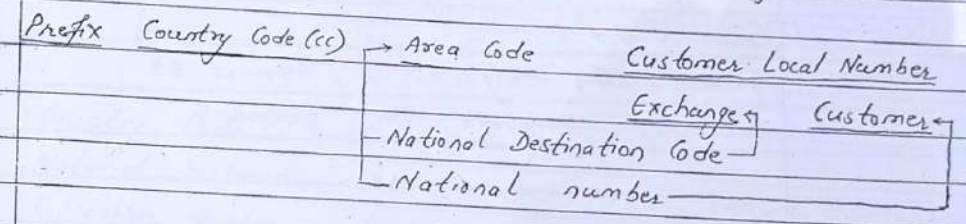 Prefix Country Code (CC) → Area Code Customer Local Number
Exchange Customer
National Destination Code
National number